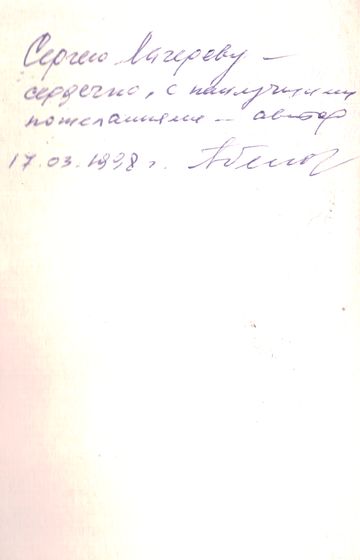 Сергею Лагереву —
сердечно, с наилучшими
пожеланиями — автор
17.03.1998 г.